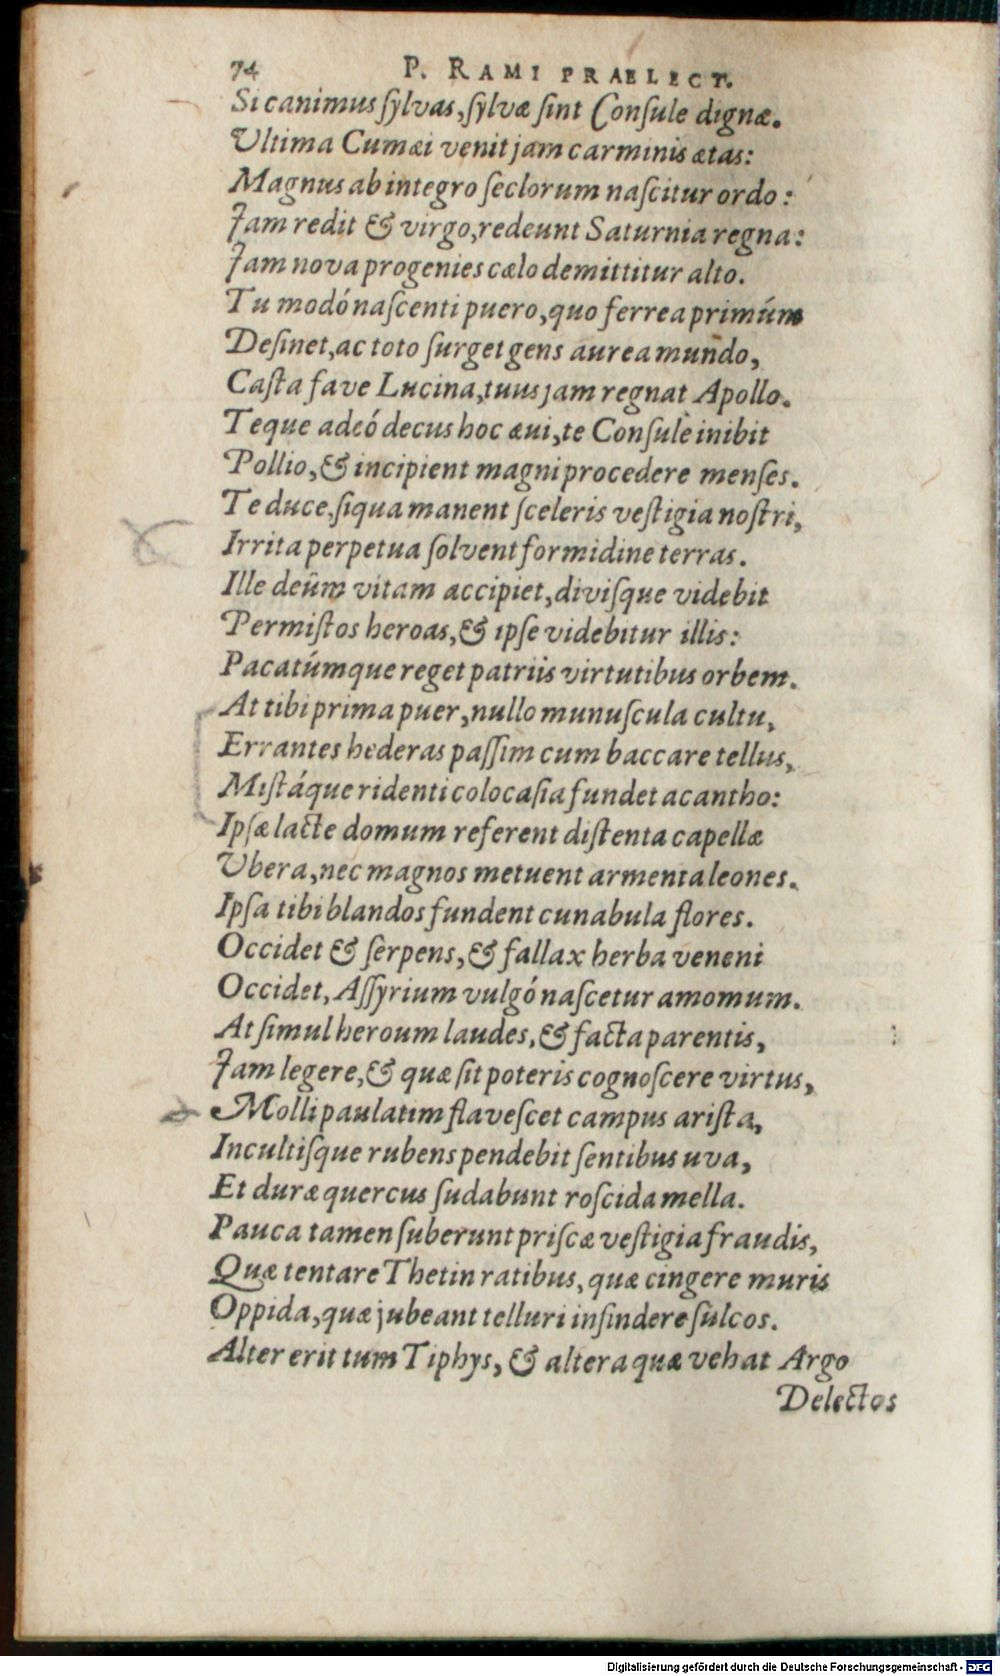 74 P. RAMI PRAELECT.
Si canimus ſylvas, ſylvæ ſint Conſule dignæ.
Ultima Cumæi venit jam carminis ætas:
Magnus ab integro ſeclorum naſcitur ordo:
Jam redit & virgo, redeunt Saturnia regna:
Jam nova progenies cælo demittitur alto.
Tu modó naſcenti puero, quo ferrea primúm
Deſinet, ac toto ſurget gens aurea mundo,
Caſta fave Lucina, tuus jam regnat Apollo.
Teque adeó decus hoc ævi, te Conſule inibit
Pollio, & incipient magni procedere menſes.
Te duce, ſiqua manent ſceleris veſtigia noſtri,
Irrita perpetua ſolvent formidine terras.
Ille deûm vitam accipiet, diviſque videbit
Permiſtos heroas, & ipſe videbitur illis:
Pacatúmque reget patriis virtutibus orbem.
At tibi prima puer, nullo munuſcula cultu,
Errantes hederas paſſim cum baccare tellus,
Miſtáque ridenti colocaſia fundet acantho:
Ipſæ lacte domum referent diſtenta capellæ
Vbera, nec magnos metuent armenta leones.
Ipſa tibi blandos fundent cunabula flores.
Occidet & ſerpens, & fallax herba veneni
Occidet, Aſſyrium vulgó naſcetur amomum.
At ſimul heroum laudes, & facta parentis,
Jam legere, & quæ ſit poteris cognoſcere virtus,
Molli paulatim flaveſcet campus ariſta,
Incultiſque rubens pendebit ſentibus uva,
Et duræ quercus ſudabunt roſcida mella.
Pauca tamen ſuberunt priſcæ veſtigia fraudis,
Quæ tentare Thetin ratibus, quæ cingere muris
Oppida, quæ jubeant telluri inſindere ſulcos.
Alter erit tum Tiphys, & altera quæ vehat Argo
Delectos
Digitalisierung gefördert durch die Deutsche Forschungsgemeinschaft - DFG